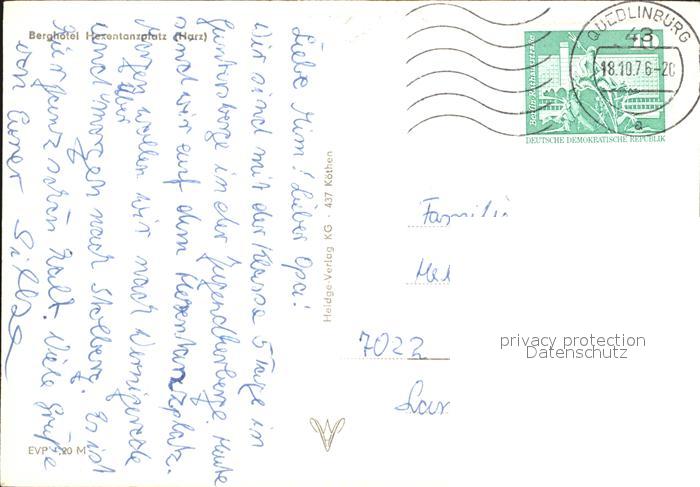 Berghotel Hexentanzplatz (Harz)
Liebe Mimi! Lieber Opa!
Wir sind mit der Klasse 5 Tage in
Güntersberge in der Jugendherberge. Heute
sind wir auf dem Hexentanzplatz.
Morgen wollen wir nach Wernigerode
und morgen nach Stolberg. Es ist
hier
ganz schön kalt. Viele Grüße
von Eurer Silke
EVP -,20 M
Heldge-Verlag KG · 437 Köthen
QUEDLINBURG
43
18.10.76-20
a
10
DEUTSCHE DEMOKRATISCHE REPUBLIK
Familie
7022
privacy protection
Datenschutz